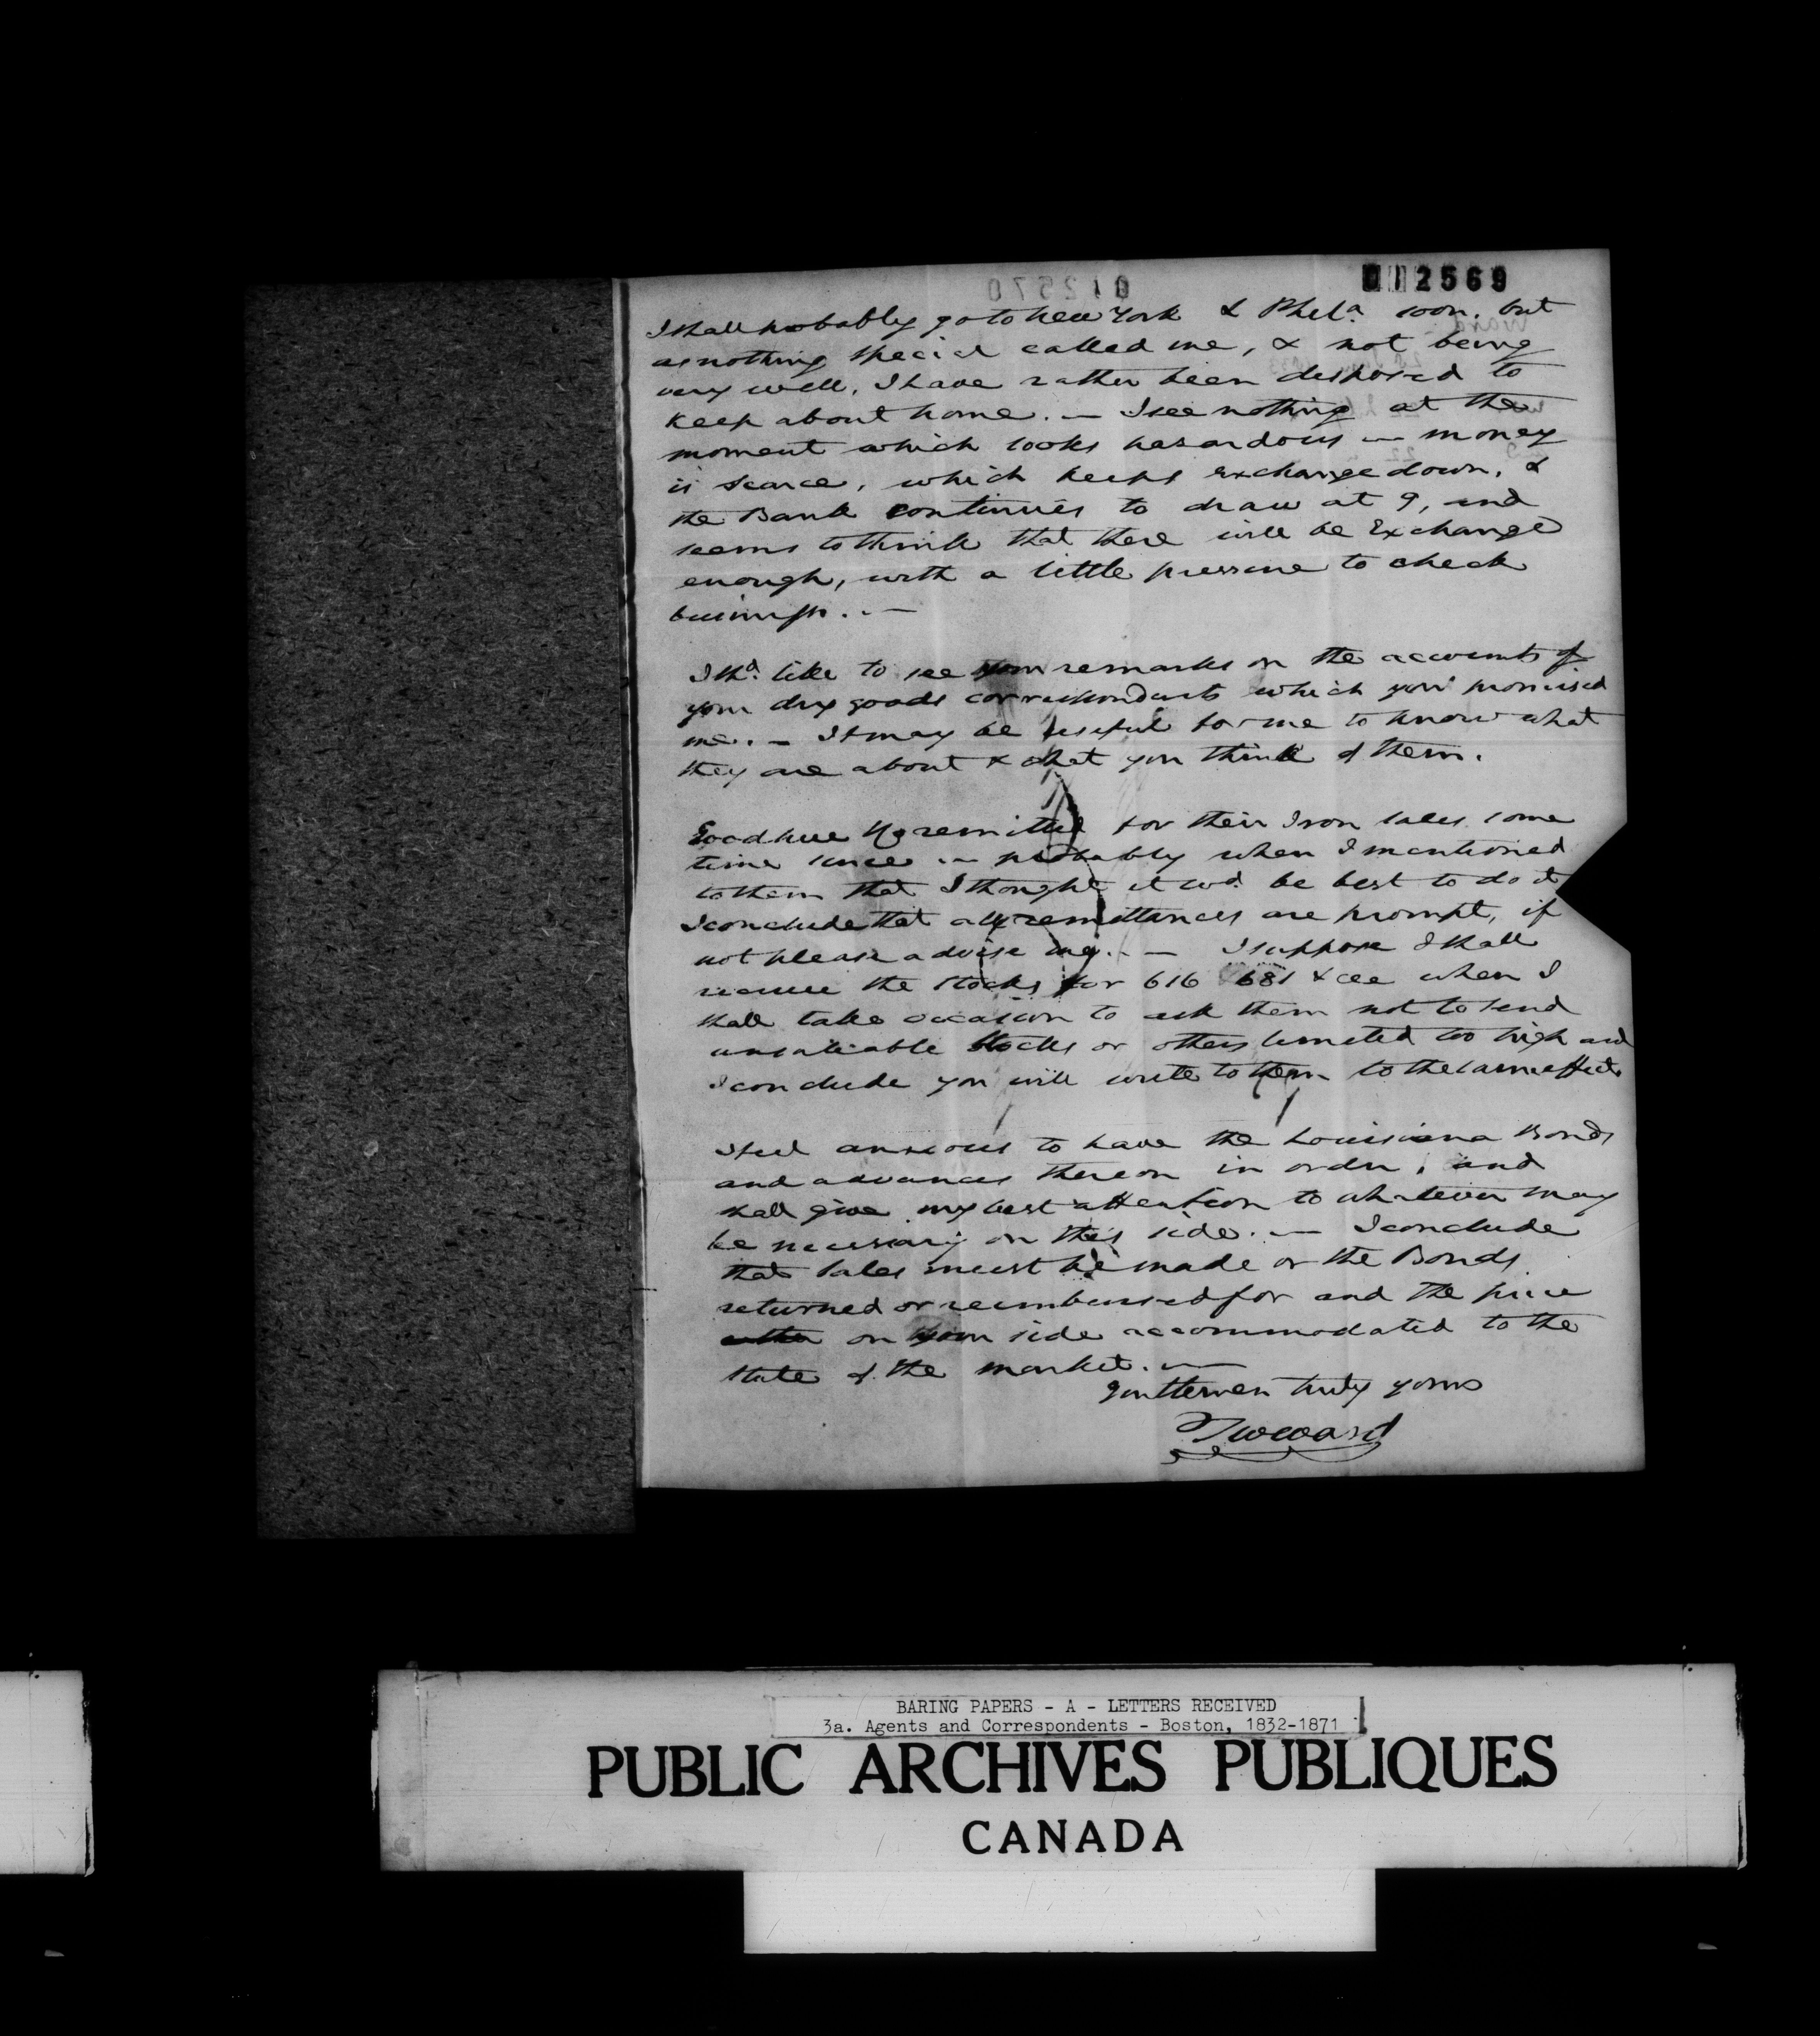 012569
I shall probably go to New York & Phila. soon. but
as nothing special called me, & not being
very well, I have rather been disposed to
keep about home. — I see nothing at the
moment which looks hazardous — money
is scarce, which keeps exchange down, &
the Bank continues to draw at 9, and
seems to think that there will be Exchange
enough, with a little pressure to check
business. —
I shd. like to see your remarks on the accounts of
your dry goods correspondents which you promised
me. — It may be useful for me to know what
they are about & what you think of them.
Goodhue remitted for their Iron sales some
time since — probably when I mentioned
to them that I thought it wd. be best to do it
I conclude that all remittances are prompt, if
not please advise me. — I suppose I shall
receive the Stocks for 616 681 & when I
shall take occasion to ask them not to send
unsaleable Stocks or others limited too high and
I conclude you will write to them to the same effect.
I feel anxious to have the Louisiana Bonds
and advances thereon in order, and
shall give my best attention to whatever may
be necessary on this side. — I conclude
that sales must be made or the Bonds
returned or reimbursed for and the price
on your side accommodated to the
state of the market. —
Gentlemen truly yours
T W Ward
BARING PAPERS - A - LETTERS RECEIVED
3a. Agents and Correspondents - Boston, 1832-1871
PUBLIC ARCHIVES PUBLIQUES
CANADA